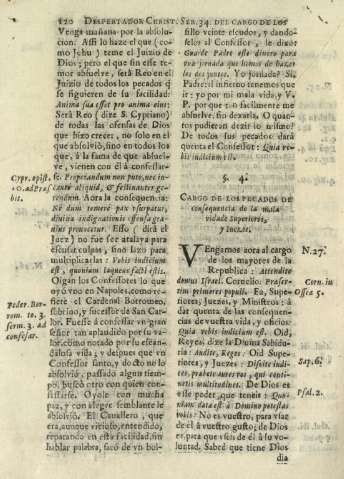 120 DESPERTADOR CHRIST. SER. 34. DEL CARGO DE LOS
Venga mañana por la absolu-
cion. Assi lo haze el que (co-
mo Jehu) teme el Juizio de
Dios; pero el que sin esse te-
mor absuelve, será Reo en el
Juizio de todos los pecados q̃
se siguieren de su facilidad:
Anima sua esset pro anima eius:
Será Reo (dize S. Cypriano)
de todas las ofensas de Dios
que hizo crecer, no solo en el
que absolvió, sino en todos los
que, à la fama de que absuel-
ve, vienen con él à confessar-
se.
Aora la consequencia:
divina indignationis offensa gra-
vius provocetur. Esso (dirá el
Juez) no fue ser atalaya para
escusar culpas, sino lazo para
multiplicarlas: Vobis iudicium
est, quoniam laqueus facti estis.
Oigan los Confessores lo que
à vno en Napoles, como re-
fiere el Cardenal Borromeo,
sobrino, y sucessor de San Car-
los. Fuesse à confessar vn gran
señor tan aplaudido por su va-
lor, como notado por su escan-
dalosa vida; y despues que vn
Confessor santo, y docto no lo
absolviò, passado algun tiem-
po, buscó otro con quien con-
fessarse. Oyole con mucha
paz, y con alegre semblante le
absolviò. El Cavallero, que
era, aunque vicioso, entendido,
reparando en esta facilidad, sin
hablar palabra, sacó de vn bol-
Cypr. epist.
Peder. Bor-
rom. to. 3.
serm. 3. ad
confesar.
sillo veinte escudos, y dando-
selos al Confessor, le dixo:
Guarde Padre este dinero para
vna jornada que hemos de hazer
los dos juntos. Yo jornada? Si,
Padre: al infierno tenemos que
ir: yo por mi mala vida, y V.
P. por que tan facilmente me
absuelve, sin dexarla. O quan-
tos pudieran dezir lo mismo!
De todos sus pecados dará
quenta el Confessor: Quia vo-
bis iudicium est.
§. 4.
CARGO DE LOS PECADOS DE
consequencia de la mala
vida de Superiores,
y Iuezes.
VEngamos aora al cargo
de los mayores de la
Republica: Attendite
domus Israel. Cornelio: Præser-
tim primores populi. Ea, Supe-
riores, Juezes, y Ministros: à
dar quenta de las consequen-
cias de vuestra vida, y oficios:
Quia vobis iudicium est. Oid,
Reyes, dize la Divina Sabidu-
ria: Audite, Reges. Oid Supe-
riores, y Juezes: Discite iudi-
ces, præbete aures, qui conti-
netis multitudines. De Dios es
esse poder, que teneis: Quo-
niam data est à Domino potestas
vobis: No es vuestro, para viar
de él à vuestro gusto; de Dios
es, para que vseis de él à su vo-
luntad. Sabed que tiene Dios
dia
N. 27.
Corn. in
Ossea 5.
Sap. 6.
Psal. 2.